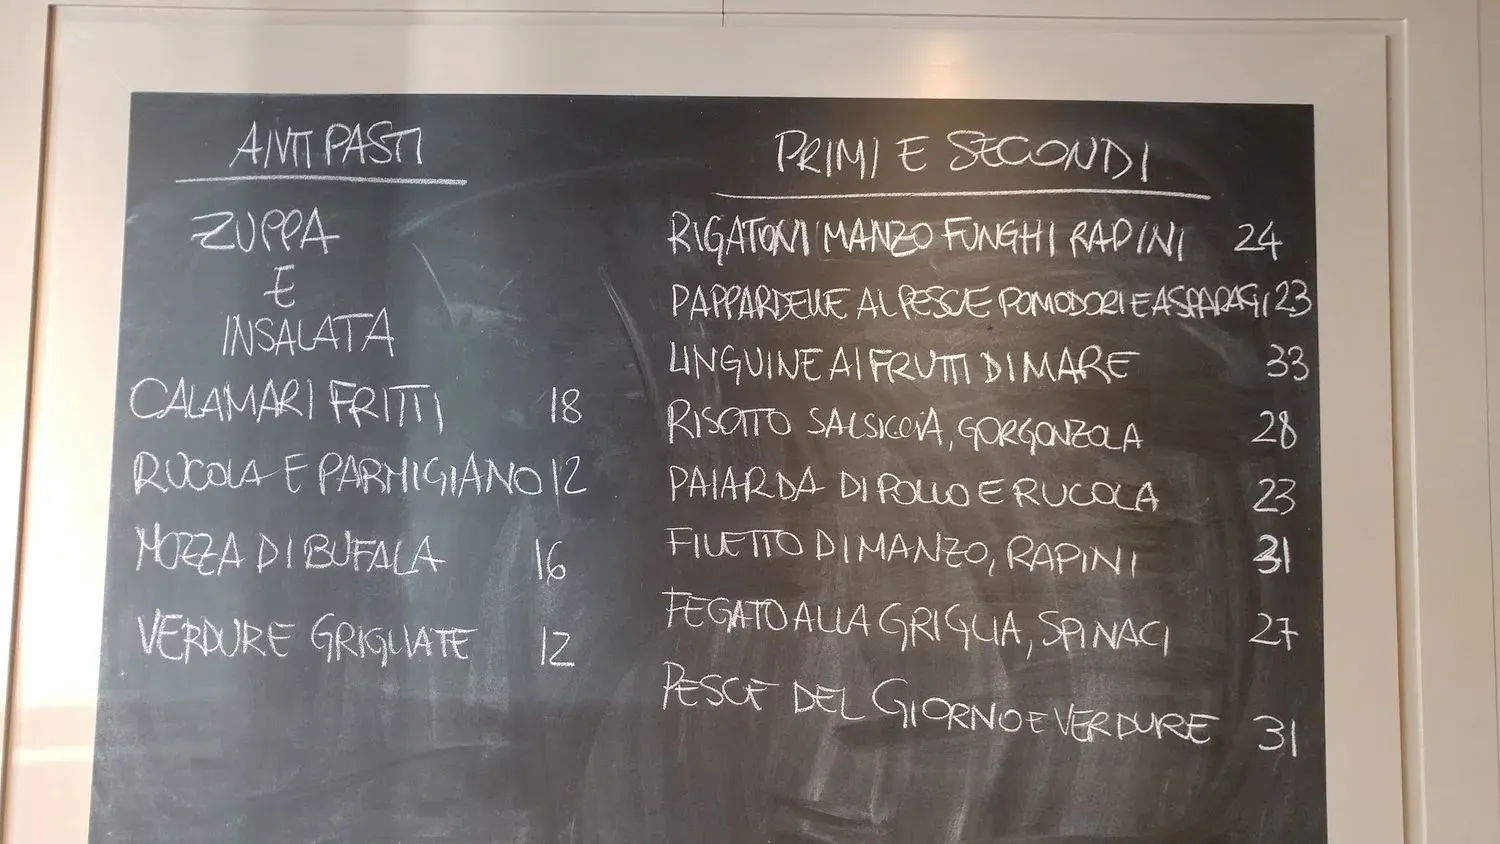 ANTIPASTI
ZUPPA
E
INSALATA
CALAMARI FRITTI 18
RUCOLA E PARMIGIANO 12
MOZZA DI BUFALA 16
VERDURE GRIGLIATE 12
PRIMI E SECONDI
RIGATONI MANZO FUNGHI RAPINI 24
PAPPARDELLE AL PESCE POMODORI E ASPARAGI 23
LINGUINE AI FRUTTI DI MARE 33
RISOTTO SALSICCIA, GORGONZOLA 28
PAIARDA DI POLLO E RUCOLA 23
FILETTO DI MANZO, RAPINI 31
FEGATO ALLA GRIGLIA, SPINACI 27
PESCE DEL GIORNO E VERDURE 31